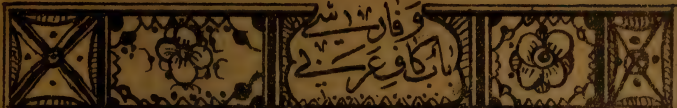 باب کاف عربی
و فارسی